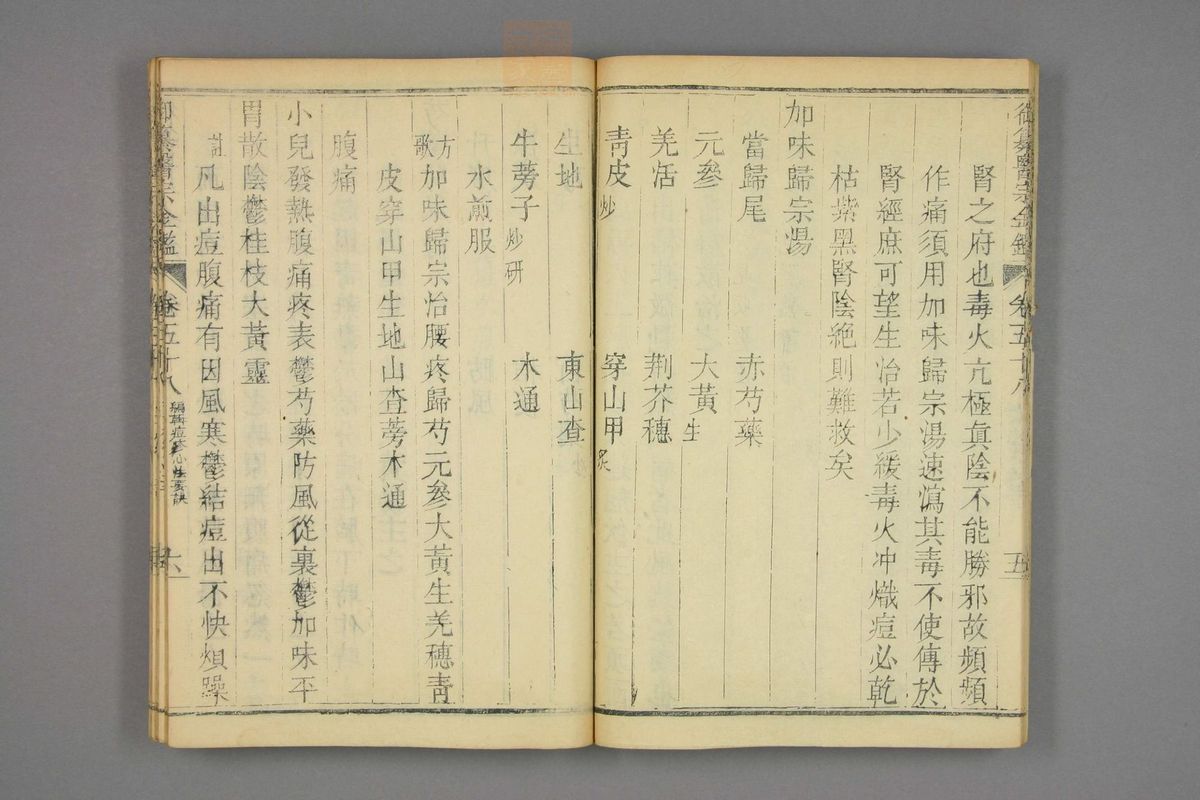 腎之府也毒火亢極眞陰不能勝邪故頻頻
作痛須用加味歸宗湯速瀉其毒不使傳於
腎經庶可望生治若少緩毒火冲熾痘必乾
枯紫黑腎陰絶則難救矣
加味歸宗湯
當歸尾 赤芍藥
元參 大黃生
羌活 荆芥穗
靑皮炒 穿山甲炙
生地 東山查
牛蒡子炒研 木通
水煎服
方歌 加味歸宗治腰疼歸芍元參大黃生羌穗靑
皮穿山甲生地山查蒡木通
腹痛
小兒發熱腹痛疼表鬱芍藥防風從裏鬱加味平
胃散陰鬱桂枝大黃靈
註 凡出痘腹痛有因風寒鬱結痘出不快煩躁
御纂醫宗金鑑 卷五十八 五
御纂醫宗金鑑 卷五十八 編輯痘疹心法要訣 六